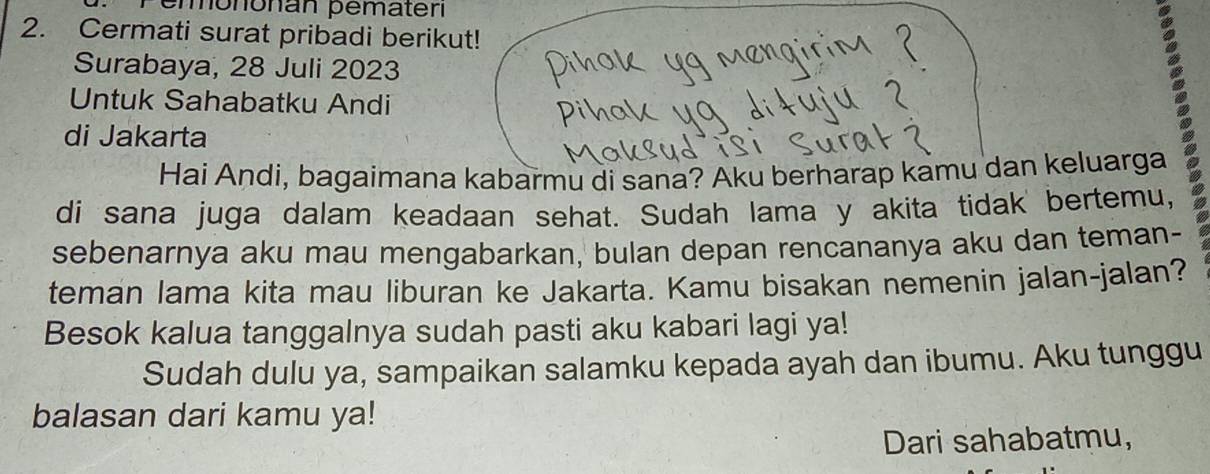 Permohonan pemateri
2. Cermati surat pribadi berikut!
Surabaya, 28 Juli 2023
Untuk Sahabatku Andi
di Jakarta
Pihak yg mengirim ?
Pihak yg dituju ?
Maksud isi surat ?
Hai Andi, bagaimana kabarmu di sana? Aku berharap kamu dan keluarga
di sana juga dalam keadaan sehat. Sudah lama y akita tidak bertemu,
sebenarnya aku mau mengabarkan, bulan depan rencananya aku dan teman-
teman lama kita mau liburan ke Jakarta. Kamu bisakan nemenin jalan-jalan?
Besok kalua tanggalnya sudah pasti aku kabari lagi ya!
Sudah dulu ya, sampaikan salamku kepada ayah dan ibumu. Aku tunggu
balasan dari kamu ya!
Dari sahabatmu,